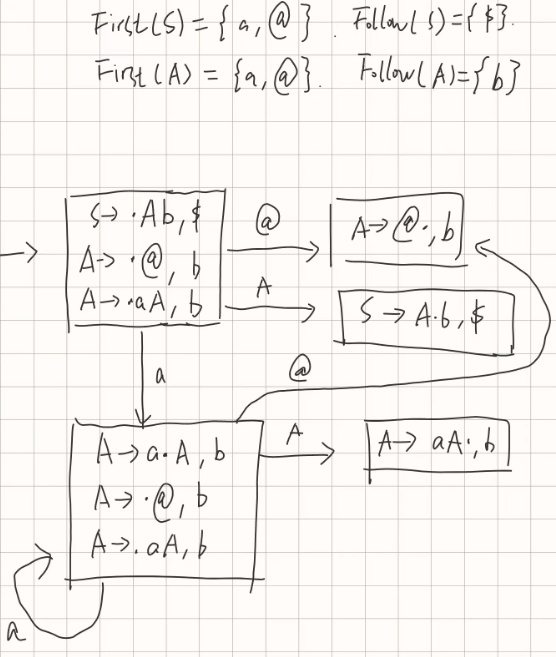 First(S) = { a, @ }. Follow(S)={$}.
First(A) = {a, @}. Follow(A)={b}
S→ ·Ab, $
A→ ·@, b
A→ ·aA, b
@
A→ @·, b
A
S → A·b, $
a
@
A→ a·A, b
A→ ·@, b
A→ ·aA, b
A
A→ aA·, b
a